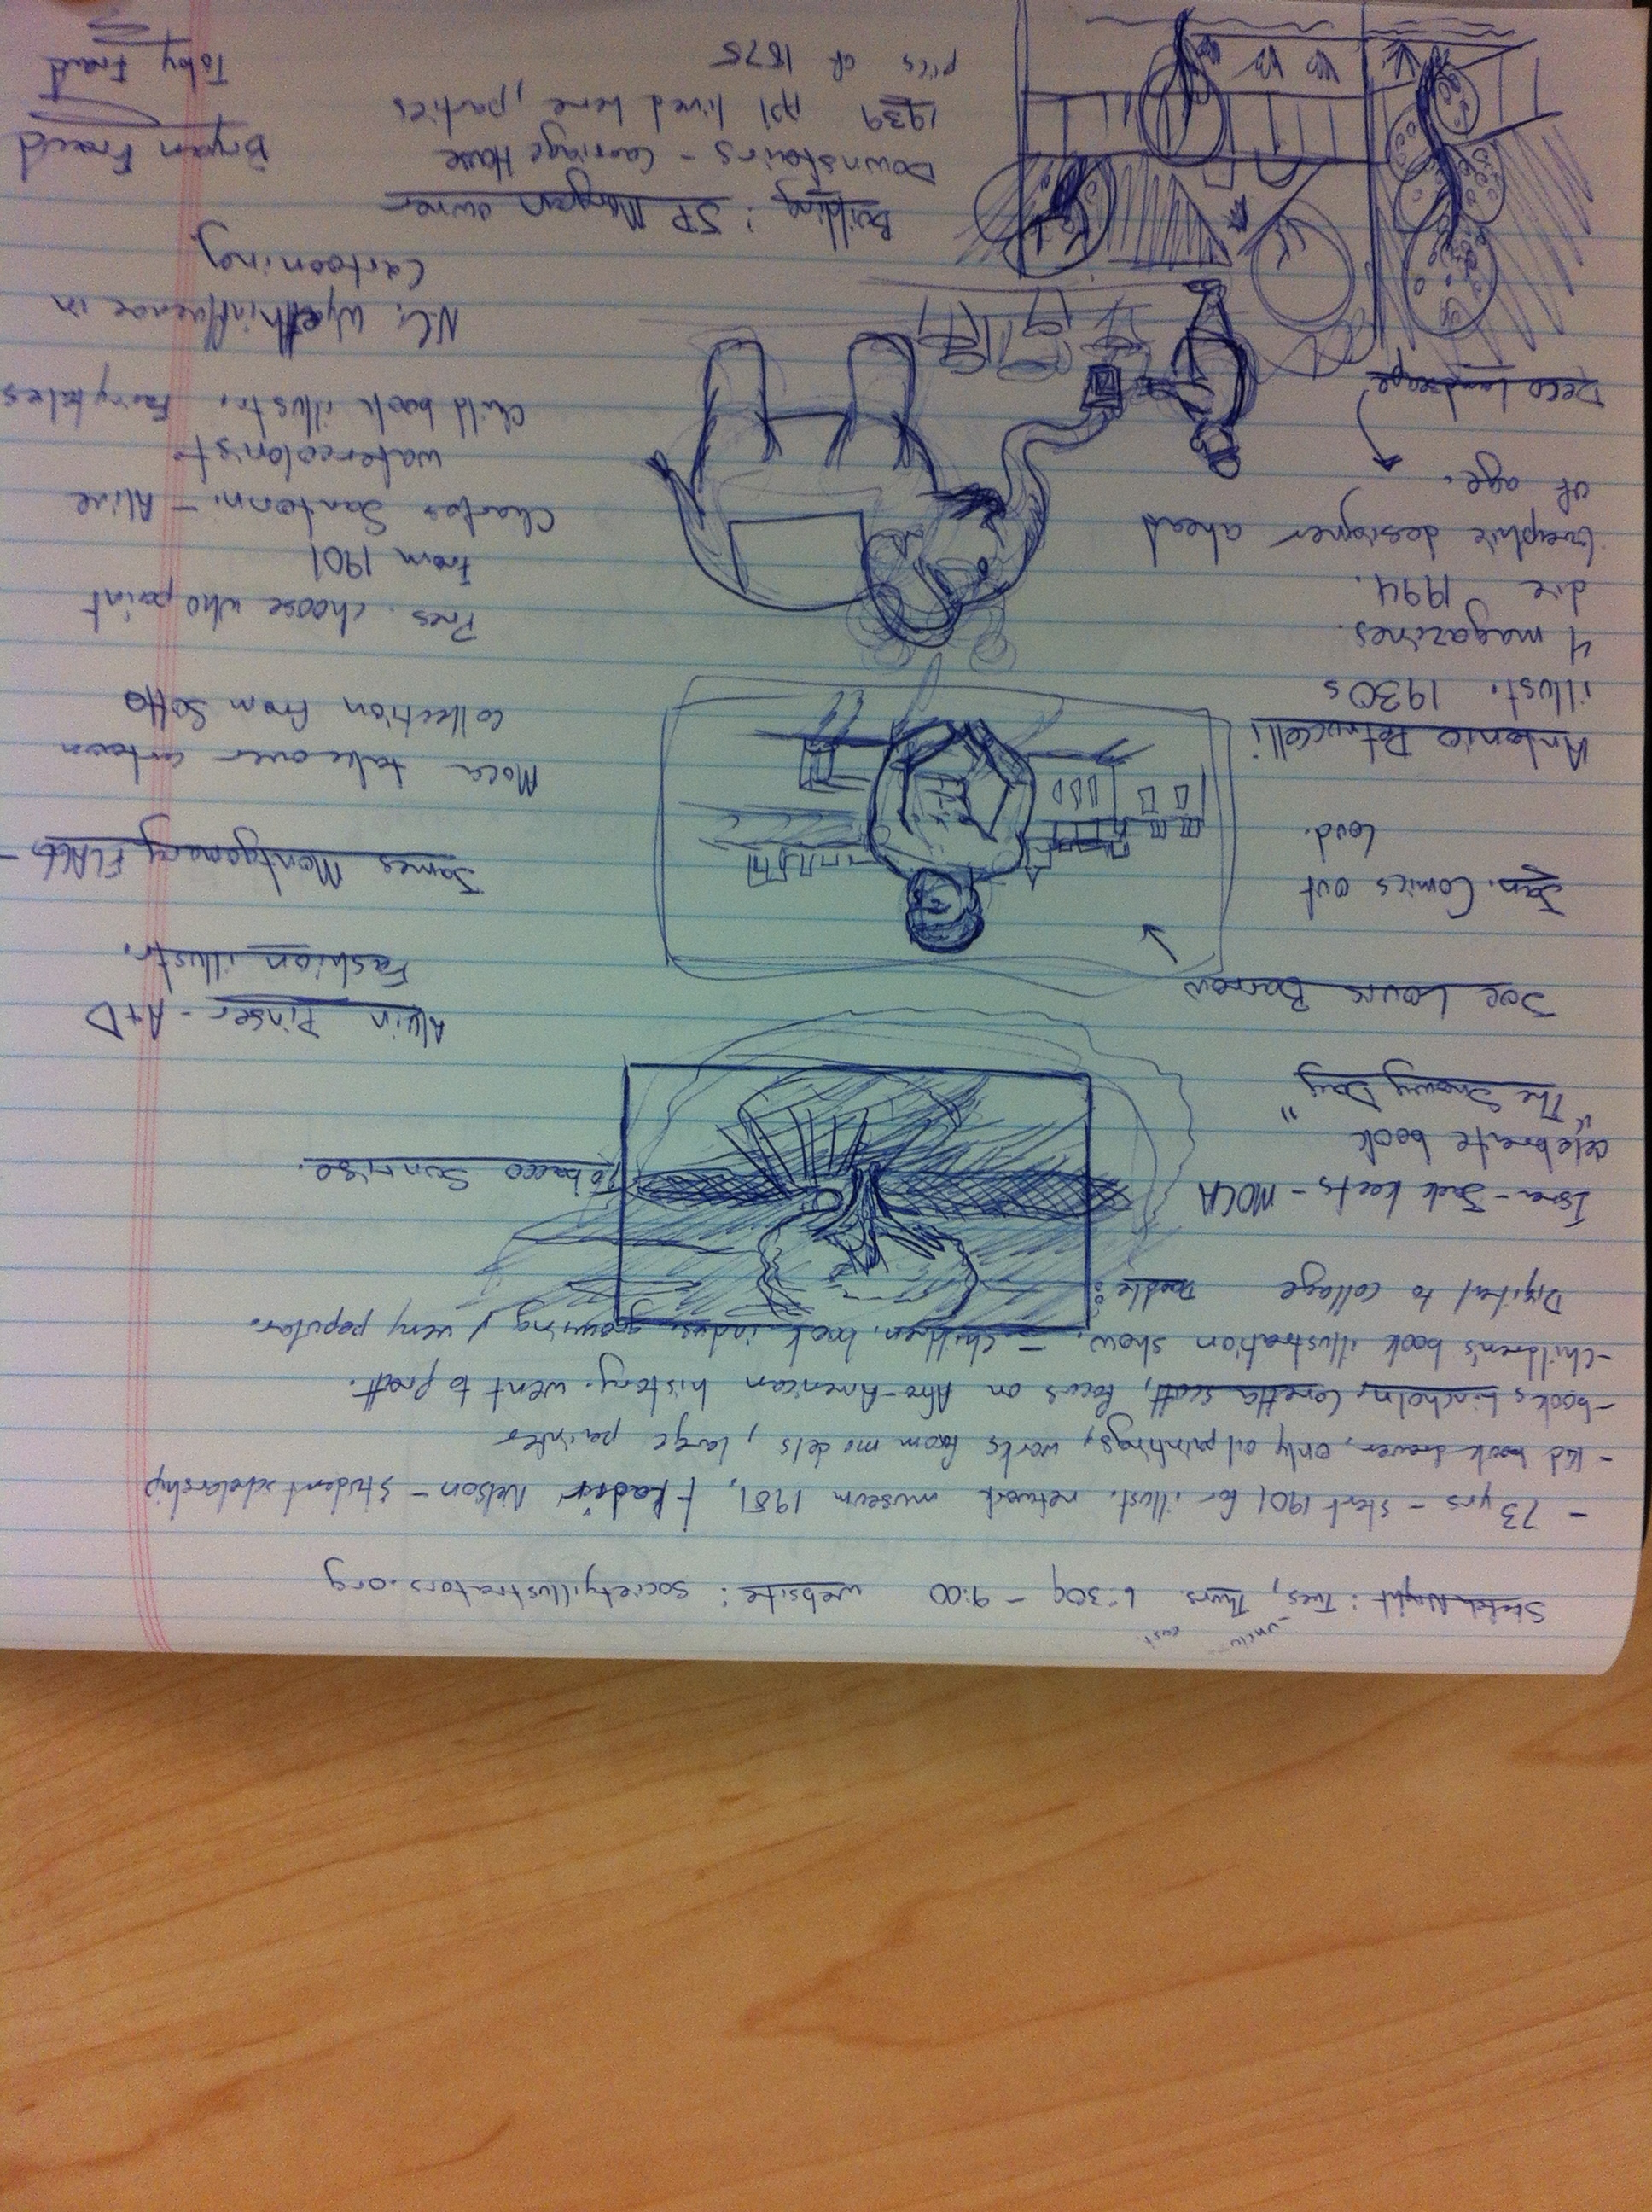 Sketch Night: Tues, Thurs 6:30 - 9:00 website: societyillustrators.org
- 73 yrs - start 1901 for illust. network museum 1981, Kadir Nelson - student scholarship
- kid book drawer, only oil paintings, works from models, large painter
- books Lincholn, Coretta Scott, focus on Afro-American history. went to pratt.
- children's book illustration show. - children. book indus. growing, very popular.
Digital to collage Doodle:
Ezra-Jack keats - MOCA
celebrate book
"The Snowy Day"
Tobacco Sunrise.
Joe Louis Barrow
Jan. Comics out
loud.
Antonio Petruccelli
illust. 1930s
4 magazines.
die 1994.
Graphic designer ahead
of age.
Deco Landscape
Alvin - A+D
Fashion illustr.
James Montgomery FLAGG -
Moca take over cartoon
collection from Soho
Pres. choose who paint
from 1901
Charles Santorini - Alive
watercolorist
Child book illustr. Fairytales
N.C. Wyeth influence in
Cartooning.
Building: JP Morgan owner
Downstairs - Carriage House
1939 ppl lived here, parties
pics of 1875
Bryan Fraud
Toby Fraud